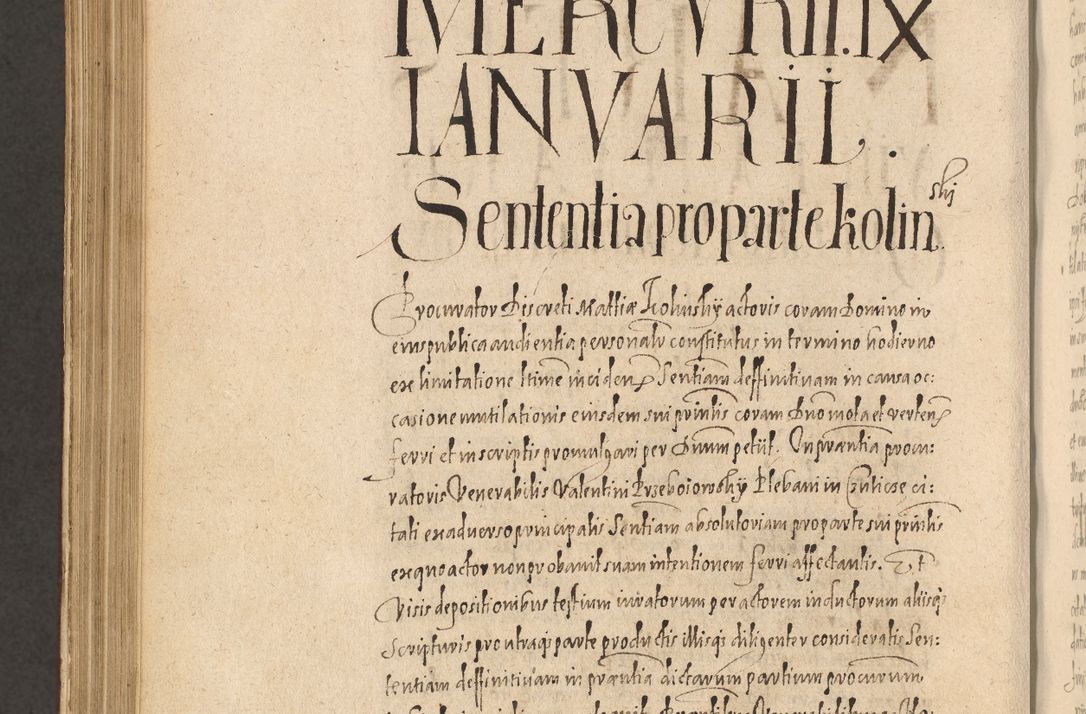 MERCVRII. IX
IANVARII.
Sententia pro parte Kolin
ski
Procurator Discreti Mattiæ Kolinsky actoris coram Domino in
eius publica audientia personalr constitutus in termino hodierno
ex limitatione ltime inciden Sentiam deffinitiuam in causa oc:
casione mutilationis eiusdem sui prinlis coram Dno mota et verten
ferri et in scriptis promulgari per Dnum petiit. In præntia procu:
ratoris Venerabilis Valentini Przeboiowsky Plebani in Czulicze ci:
tati ex aduerso principalis Sentiam absolutoriam pro parte sui prinlis
ex quo actor non probauit suam intentionem ferri affectantis. Et
Visis depositionibus testium iuratorum per actorem inductorum aliisq
Scripturis pro utraq parte productis illisq diligenter consideratis Sen:
tentiam deffinitiuam in præntia dictarum partium procurum